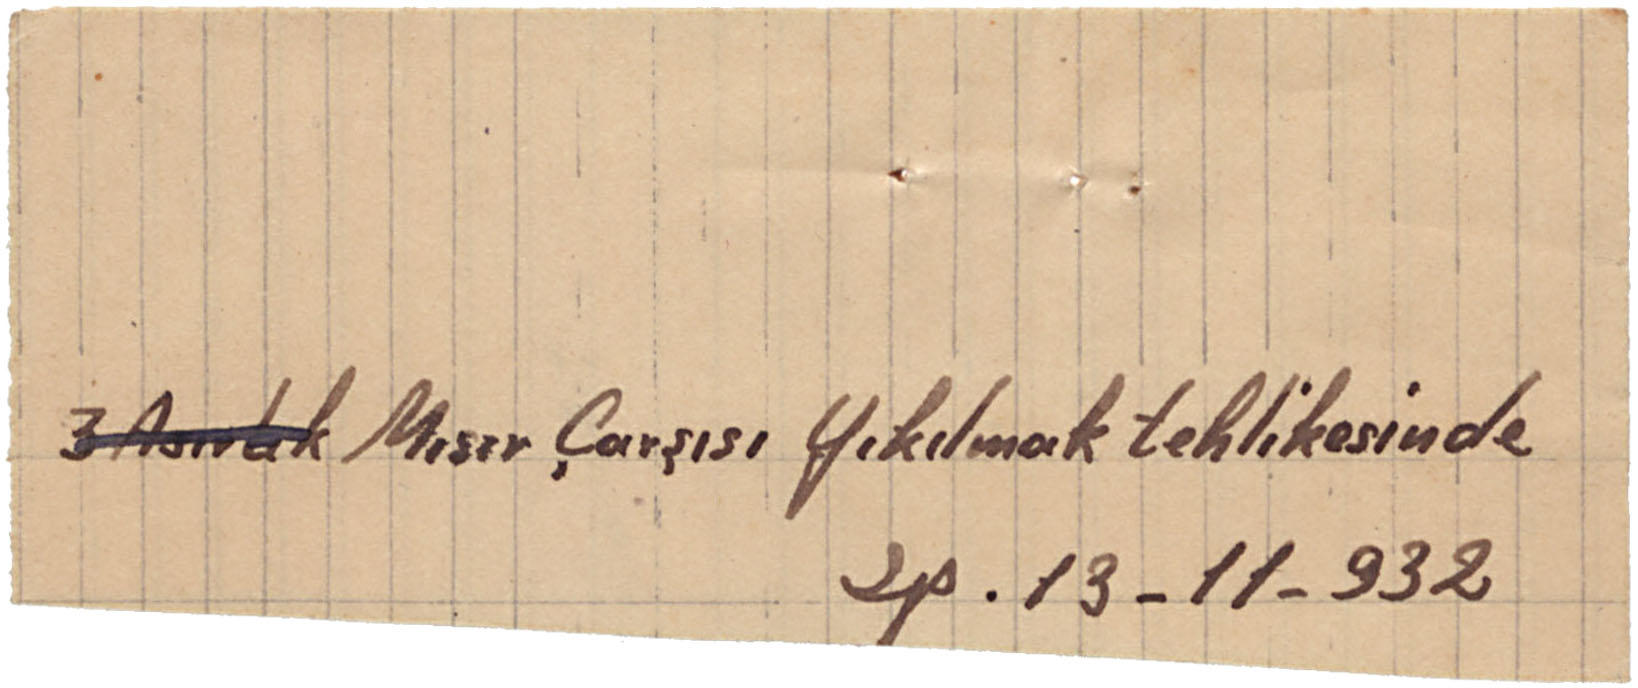 3 Asırlık Mısır Çarşısı Yıkılmak tehlikesinde
13-11-932